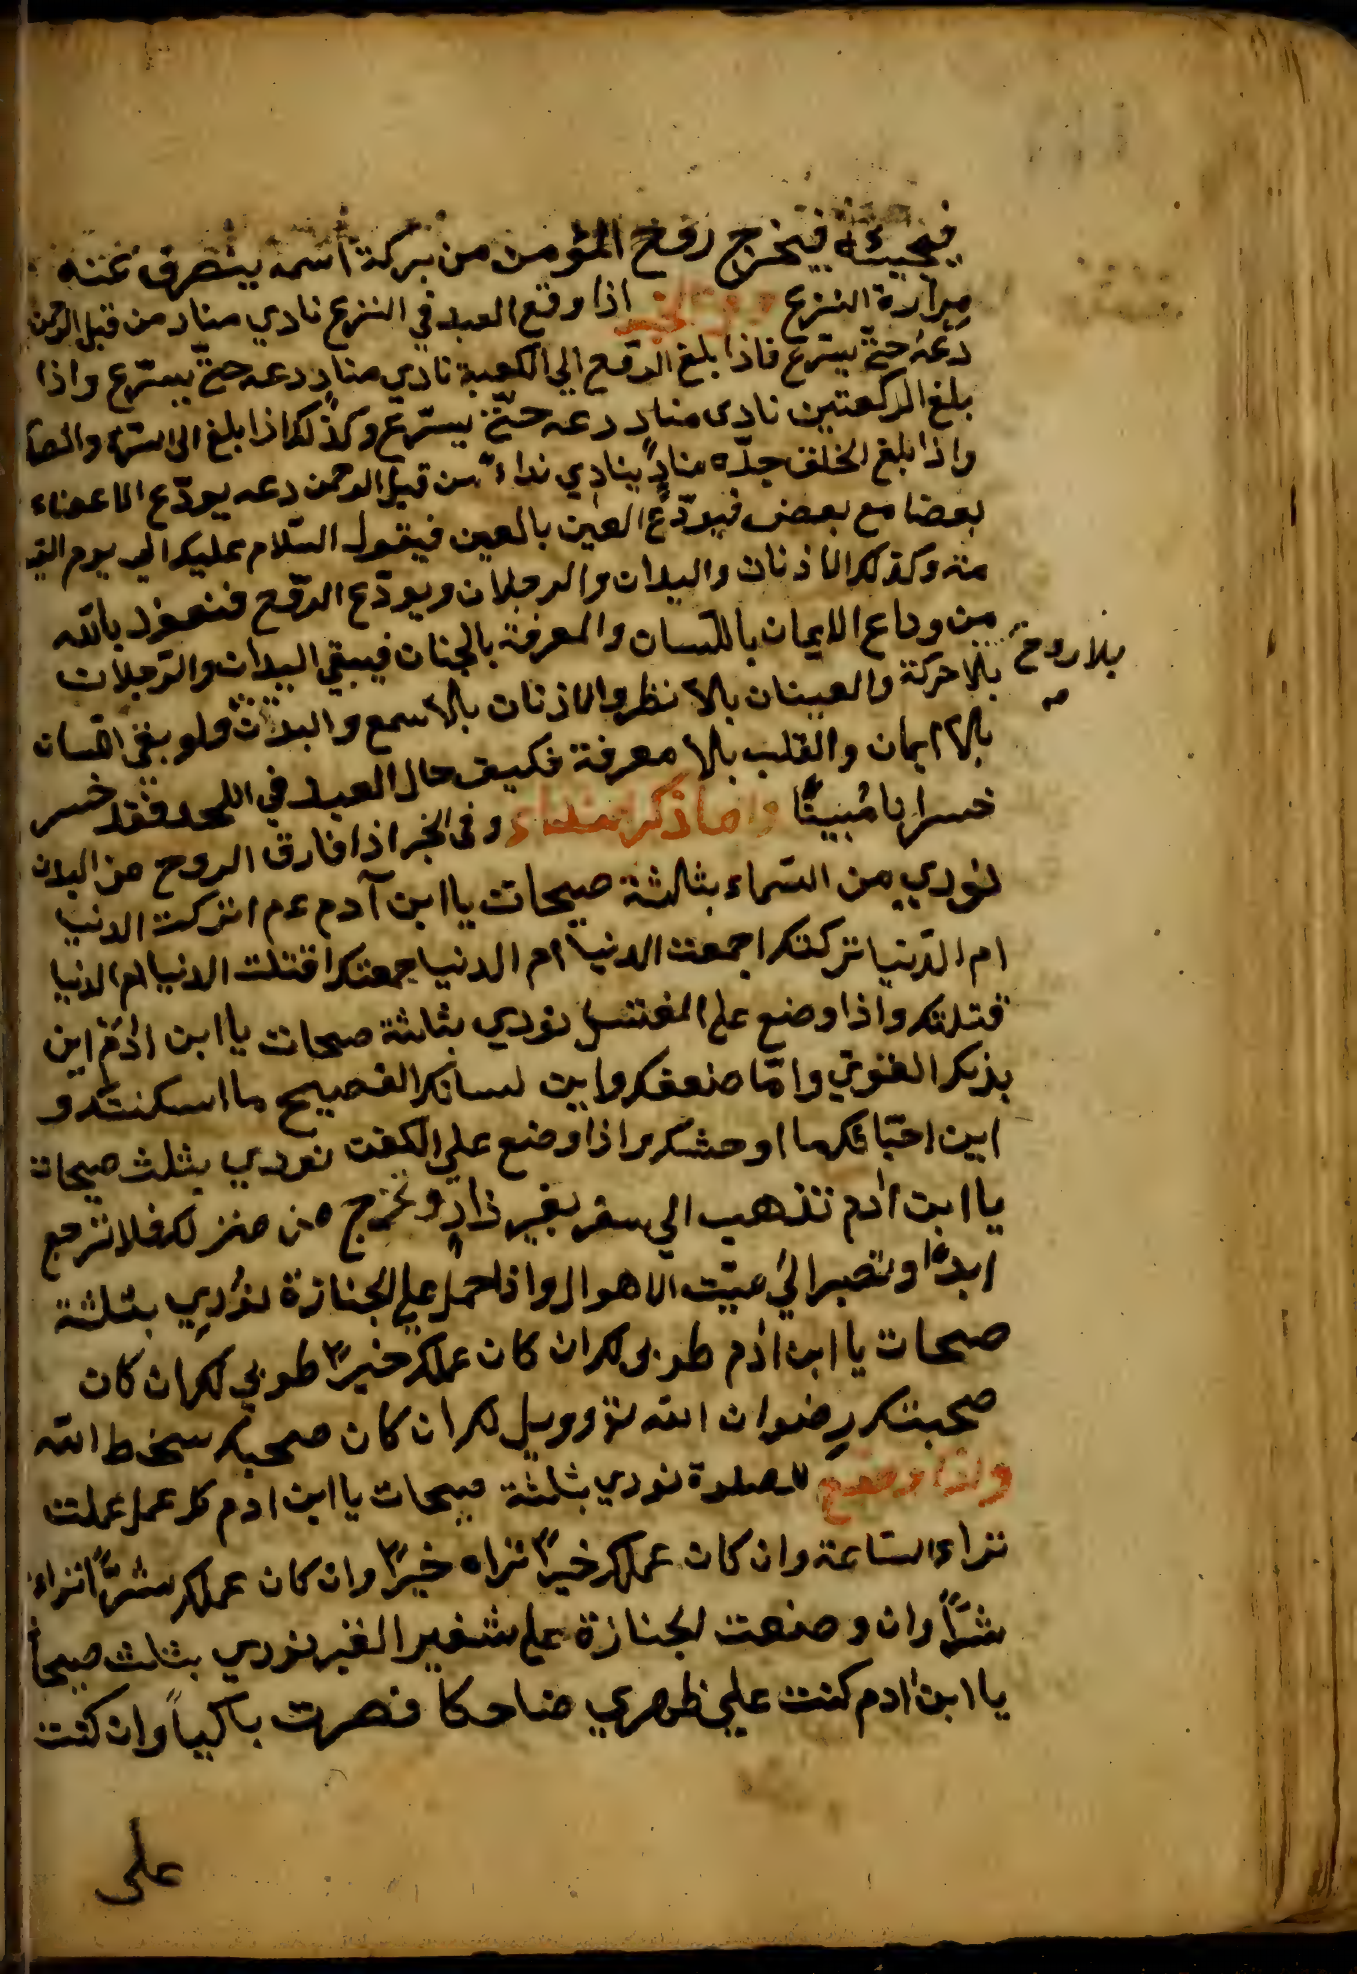 فيجيئه فيخرج روح المؤمن من بركة اسمه ينصرف عنه
مرارة النزع وفي الخبر اذا وقع العبد في النزع نادي مناد من قبل الرحمن
دعه حتّى يسترع فاذا بلغ الرّوح الي الكعبة نادي منادٍ دعه حتّى يسترع واذا
بلغ الركعتين نادى منادٍ دعه حتّى يسترع وكذلك اذا بلغ الى السرّة والصد
واذا بلغ الخلق جدّه منادٍ ينادي نداءً من قبل الرحمن دعه يودّع الاعضاء
بعضا مع بعض فيودّع العين بالعين فيقول السّلام عليك الي يوم القي
مة وكذلك الاذنان واليدان والرجلان ويودّع الرّوح فنعوذ بالله
من وداع الايمان باللّسان والمعرفة بالجنان فيبقي اليدان والرّجلان
بلا حركة والعينان بلا نظر والاذنان بلا سمع والبدن ولو بقي اللسان
بلا روح
بلا ايمان والقلب بلا معرفة فكيف حال العبد في اللحد فقد خسر
خسرانا مُبينًا وفي الخبر اذا فارق الروح من البدن
نودي من السّماء بثلثة صيحات يا ابن آدم عم اتركت الدنيا
ام الدّنيا تركتك اجمعت الدنيا ام الدنيا جمعتك اقتلت الدنيا ام الدنيا
قتلتك واذا وضع على المغتسل نودي بثلثة صيحات يا ابن ادم اين
بدنك القويّ وامّا ضعفك واين لسانك الفصيح ما اسكنتك و
اين احبّائك ما اوحشك واذا وضع علي الكفن نودي بثلث صيحات
يا ابن ادم تذهب الي سفر بغير زادٍ وتخرج من منزلك فلا ترجع
ابدًا وتصير الي بيت الاهوال واذا حمل علي الجنازة نودي بثلثة
صيحات يا ابن ادم طوبى لك ان كان عملك خيرًا طوبي لك ان كان
صحبتك رضوان الله تع وويل لك ان كان صحبك سخط الله
واذا وضع للصلوة نودي بثلثة صيحات يا ابن ادم كل عمل عملت
تراه الساعة وان كان عملك خيرًا تراه خيرًا وان كان عملك شرًّا تراه
شرًّا وان وضعت الجنازة على شفير القبر نودي بثلث صيحاً
يا ابن ادم كنت علي ظهري ضاحكا فصرت باكياً وان كنت
على